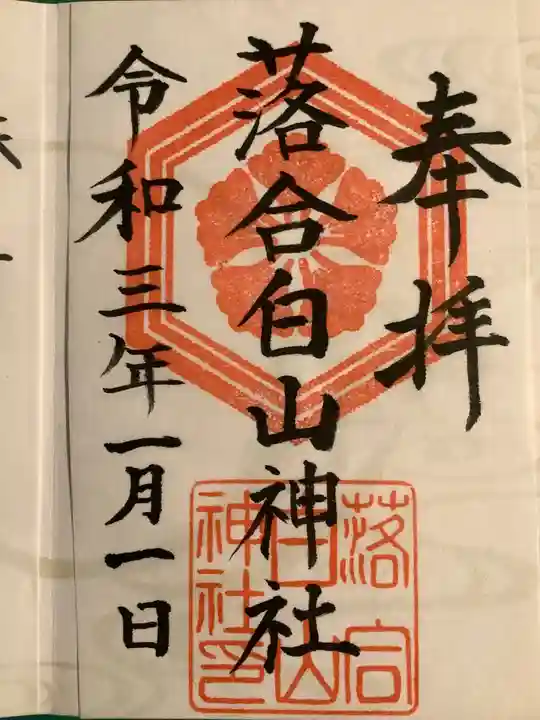 奉拝
落合白山神社
令和三年一月一日
落合
白山
神社印